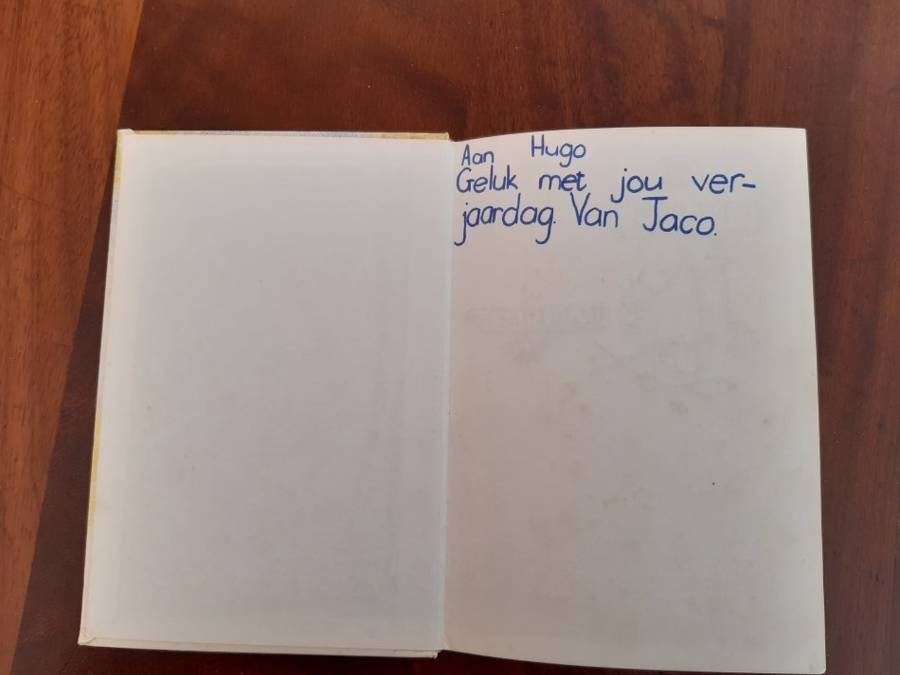 Aan Hugo
Geluk met jou ver-
jaardag. Van Jaco.